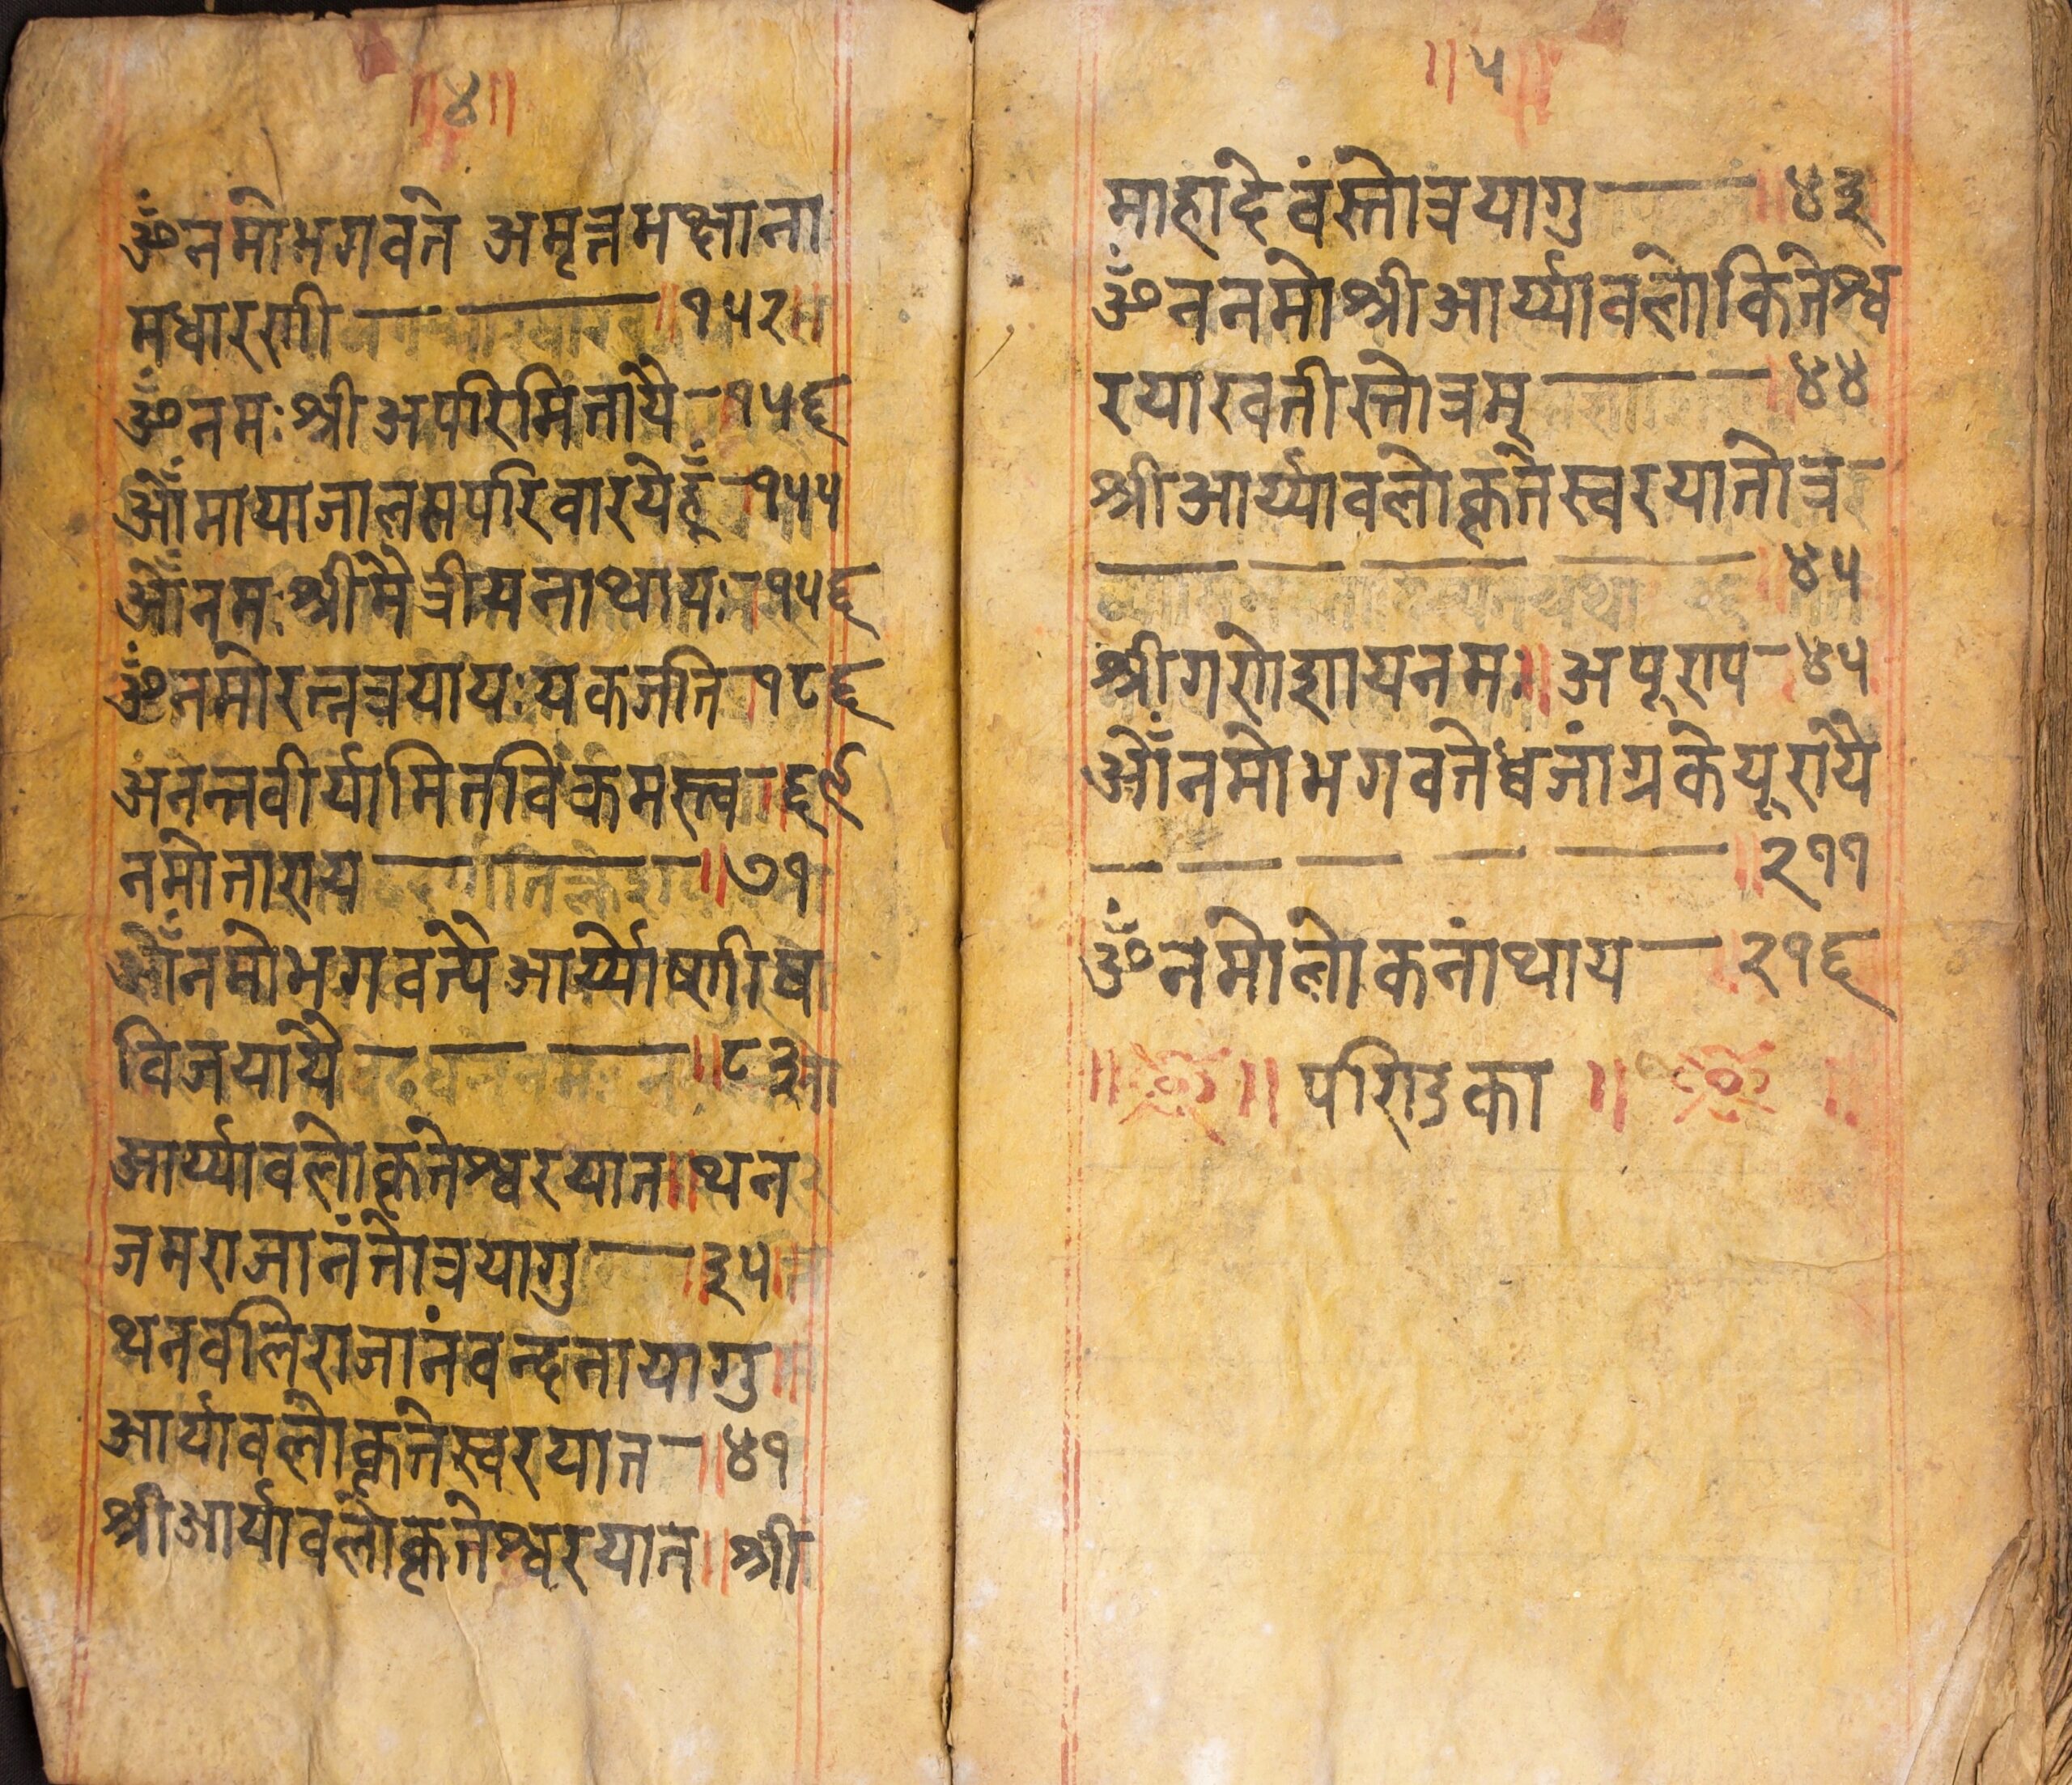 ॥४॥
ॐ नमो भगवते अमृत्तमक्षाना
मधारणी — — ॥ १५२
ॐ नमः श्री अपरिमितायै - १५६
ओँ मायाजालसपरिवारये हूँ - १५५
ओँ नमः श्री मैत्रीयनाथायः - १५६
ॐ नमो रत्नत्रयायः यकजति १८६
अनन्तवीर्यामितविंकमस्त्व - । ६९
नमो ताराय — — — ॥ ७१
ओँ नमो भगवत्यै आर्य्योष्णीष
विजयायै - — — ॥ ८३
आर्य्यावलोकृतेश्वरयात ॥ थन
जमराजानंतोत्रयागु — ॥ ३५
थनवलिराजानंवन्दनायागु
आर्यावलोकृतेस्वरयात - ॥ ४१
श्री आर्यावलोकृतेश्वरयात ॥ श्री
॥५॥
माहादेवंस्तोत्रयागु — ॥ ४३
ॐ ननमो श्री आर्य्यावलोकितेश्व
रयारवतीस्तोत्रम् — - ॥ ४४
श्री आर्य्यावलोकृतेस्वरयातोत्र -
— — — — ४५
श्रीगणेशायनमः ॥ अपूराप - ४५
ओँ नमो भगवतेध्वजांग्रकेयूरायै
— — — — — ॥ २११
ॐ नमो लोकनांथाय — २१६
॥ ॥ ॥ ॥